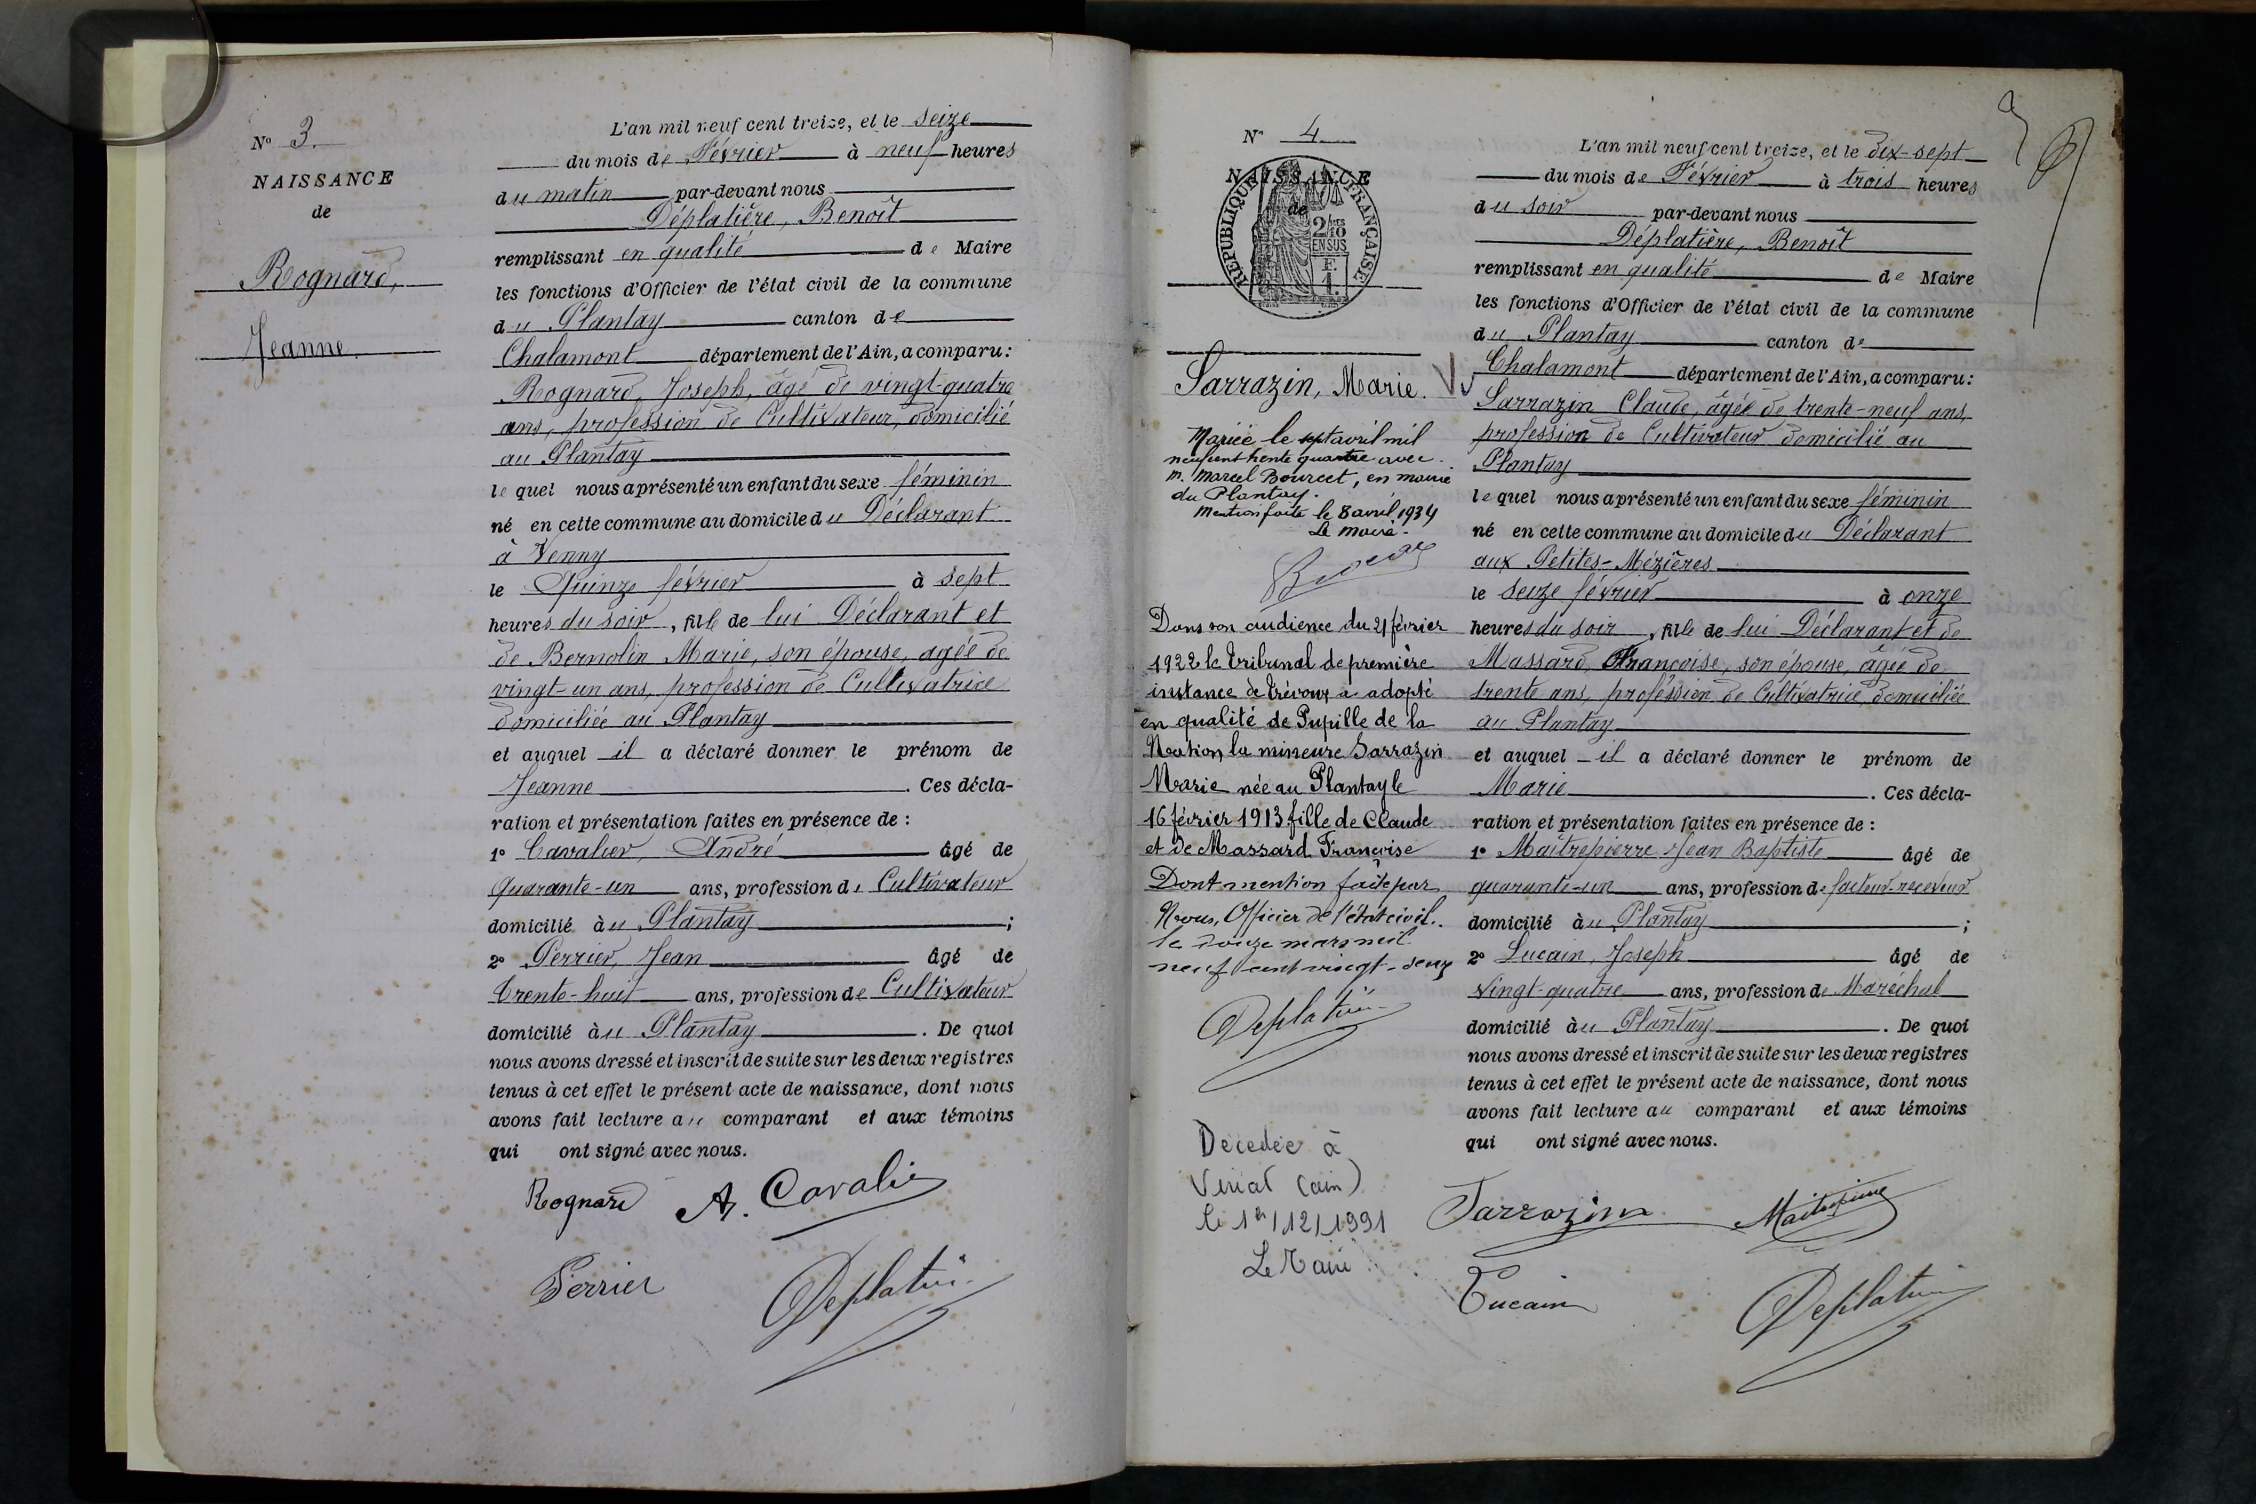 N° 3.
NAISSANCE
de
Rognard,
Jeanne.
L'an mil neuf cent treize, et le seize
du mois de Février à neuf heures
du matin par-devant nous
Déplatière, Benoît
remplissant en qualité de Maire
les fonctions d'Officier de l'état civil de la commune
du Plantay canton de
Chalamont département de l'Ain, a comparu :
Rognard, Joseph, âgé de vingt-quatre
ans, profession de Cultivateur, domicilié
au Plantay
lequel nous a présenté un enfant du sexe féminin
né en cette commune au domicile du Déclarant
à Venny
le Quinze février à sept
heures du soir, fille de lui Déclarant et
de Bernolin Marie, son épouse, agée de
vingt-un ans, profession de Cultivatrice
domiciliée au Plantay
et auquel il a déclaré donner le prénom de
Jeanne. Ces décla-
ration et présentation faites en présence de :
1° Cavalier, André âgé de
Quarante-un ans, profession de Cultivateur
domicilié au Plantay ;
2° Perrier, Jean âgé de
trente-huit ans, profession de Cultivateur
domicilié au Plantay. De quoi
nous avons dressé et inscrit de suite sur les deux registres
tenus à cet effet le présent acte de naissance, dont nous
avons fait lecture au comparant et aux témoins
qui ont signé avec nous.
Rognard A. Cavalier
Perrier Deplatière
N° 4
NAISSANCE
de
RÉPUBLIQUE FRANÇAISE
2/10
EN SUS
F.
1.
Sarrazin, Marie.
Mariée le sept avril mil
neuf cent trente quatre avec
M. Marcel Bourcet, en mairie
du Plantay.
Mention faite le 8 avril 1934
Le maire.
Dans son audience du 21 février
1922 le Tribunal de première
instance de Trévoux a adopté
en qualité de Pupille de la
Nation, la mineure Sarrazin
Marie née au Plantay le
16 février 1913 fille de Claude
et de Massard Françoise
Dont mention faite par
Nous, Officier de l'état civil.
le douze mars mil
neuf cent vingt-deux
Deplatière
Décédée à
Viriat (Ain)
le 1er/12/1991
Le Maire
L'an mil neuf cent treize, et le dix-sept
du mois de Février à trois heures
du soir par-devant nous
Déplatière, Benoît
remplissant en qualité de Maire
les fonctions d'Officier de l'état civil de la commune
du Plantay canton de
Chalamont département de l'Ain, a comparu :
Sarrazin Claude, âgée de trente-neuf ans,
profession de Cultivateur domicilié au
Plantay
lequel nous a présenté un enfant du sexe féminin
né en cette commune au domicile du Déclarant
aux Petites-Mézières
le seize février à onze
heures du soir, fille de lui Déclarant et de
Massard, Françoise, son épouse, âgée de
trente ans, profession de Cultivatrice, domiciliée
au Plantay
et auquel il a déclaré donner le prénom de
Marie. Ces décla-
ration et présentation faites en présence de :
1° Maitrepierre Jean Baptiste âgé de
quarante-un ans, profession de facteur-receveur
domicilié au Plantay ;
2° Lucain, Joseph âgé de
vingt-quatre ans, profession de Maréchal
domicilié au Plantay. De quoi
nous avons dressé et inscrit de suite sur les deux registres
tenus à cet effet le présent acte de naissance, dont nous
avons fait lecture au comparant et aux témoins
qui ont signé avec nous.
Sarrazin Maitrepierre
Lucain Deplatière